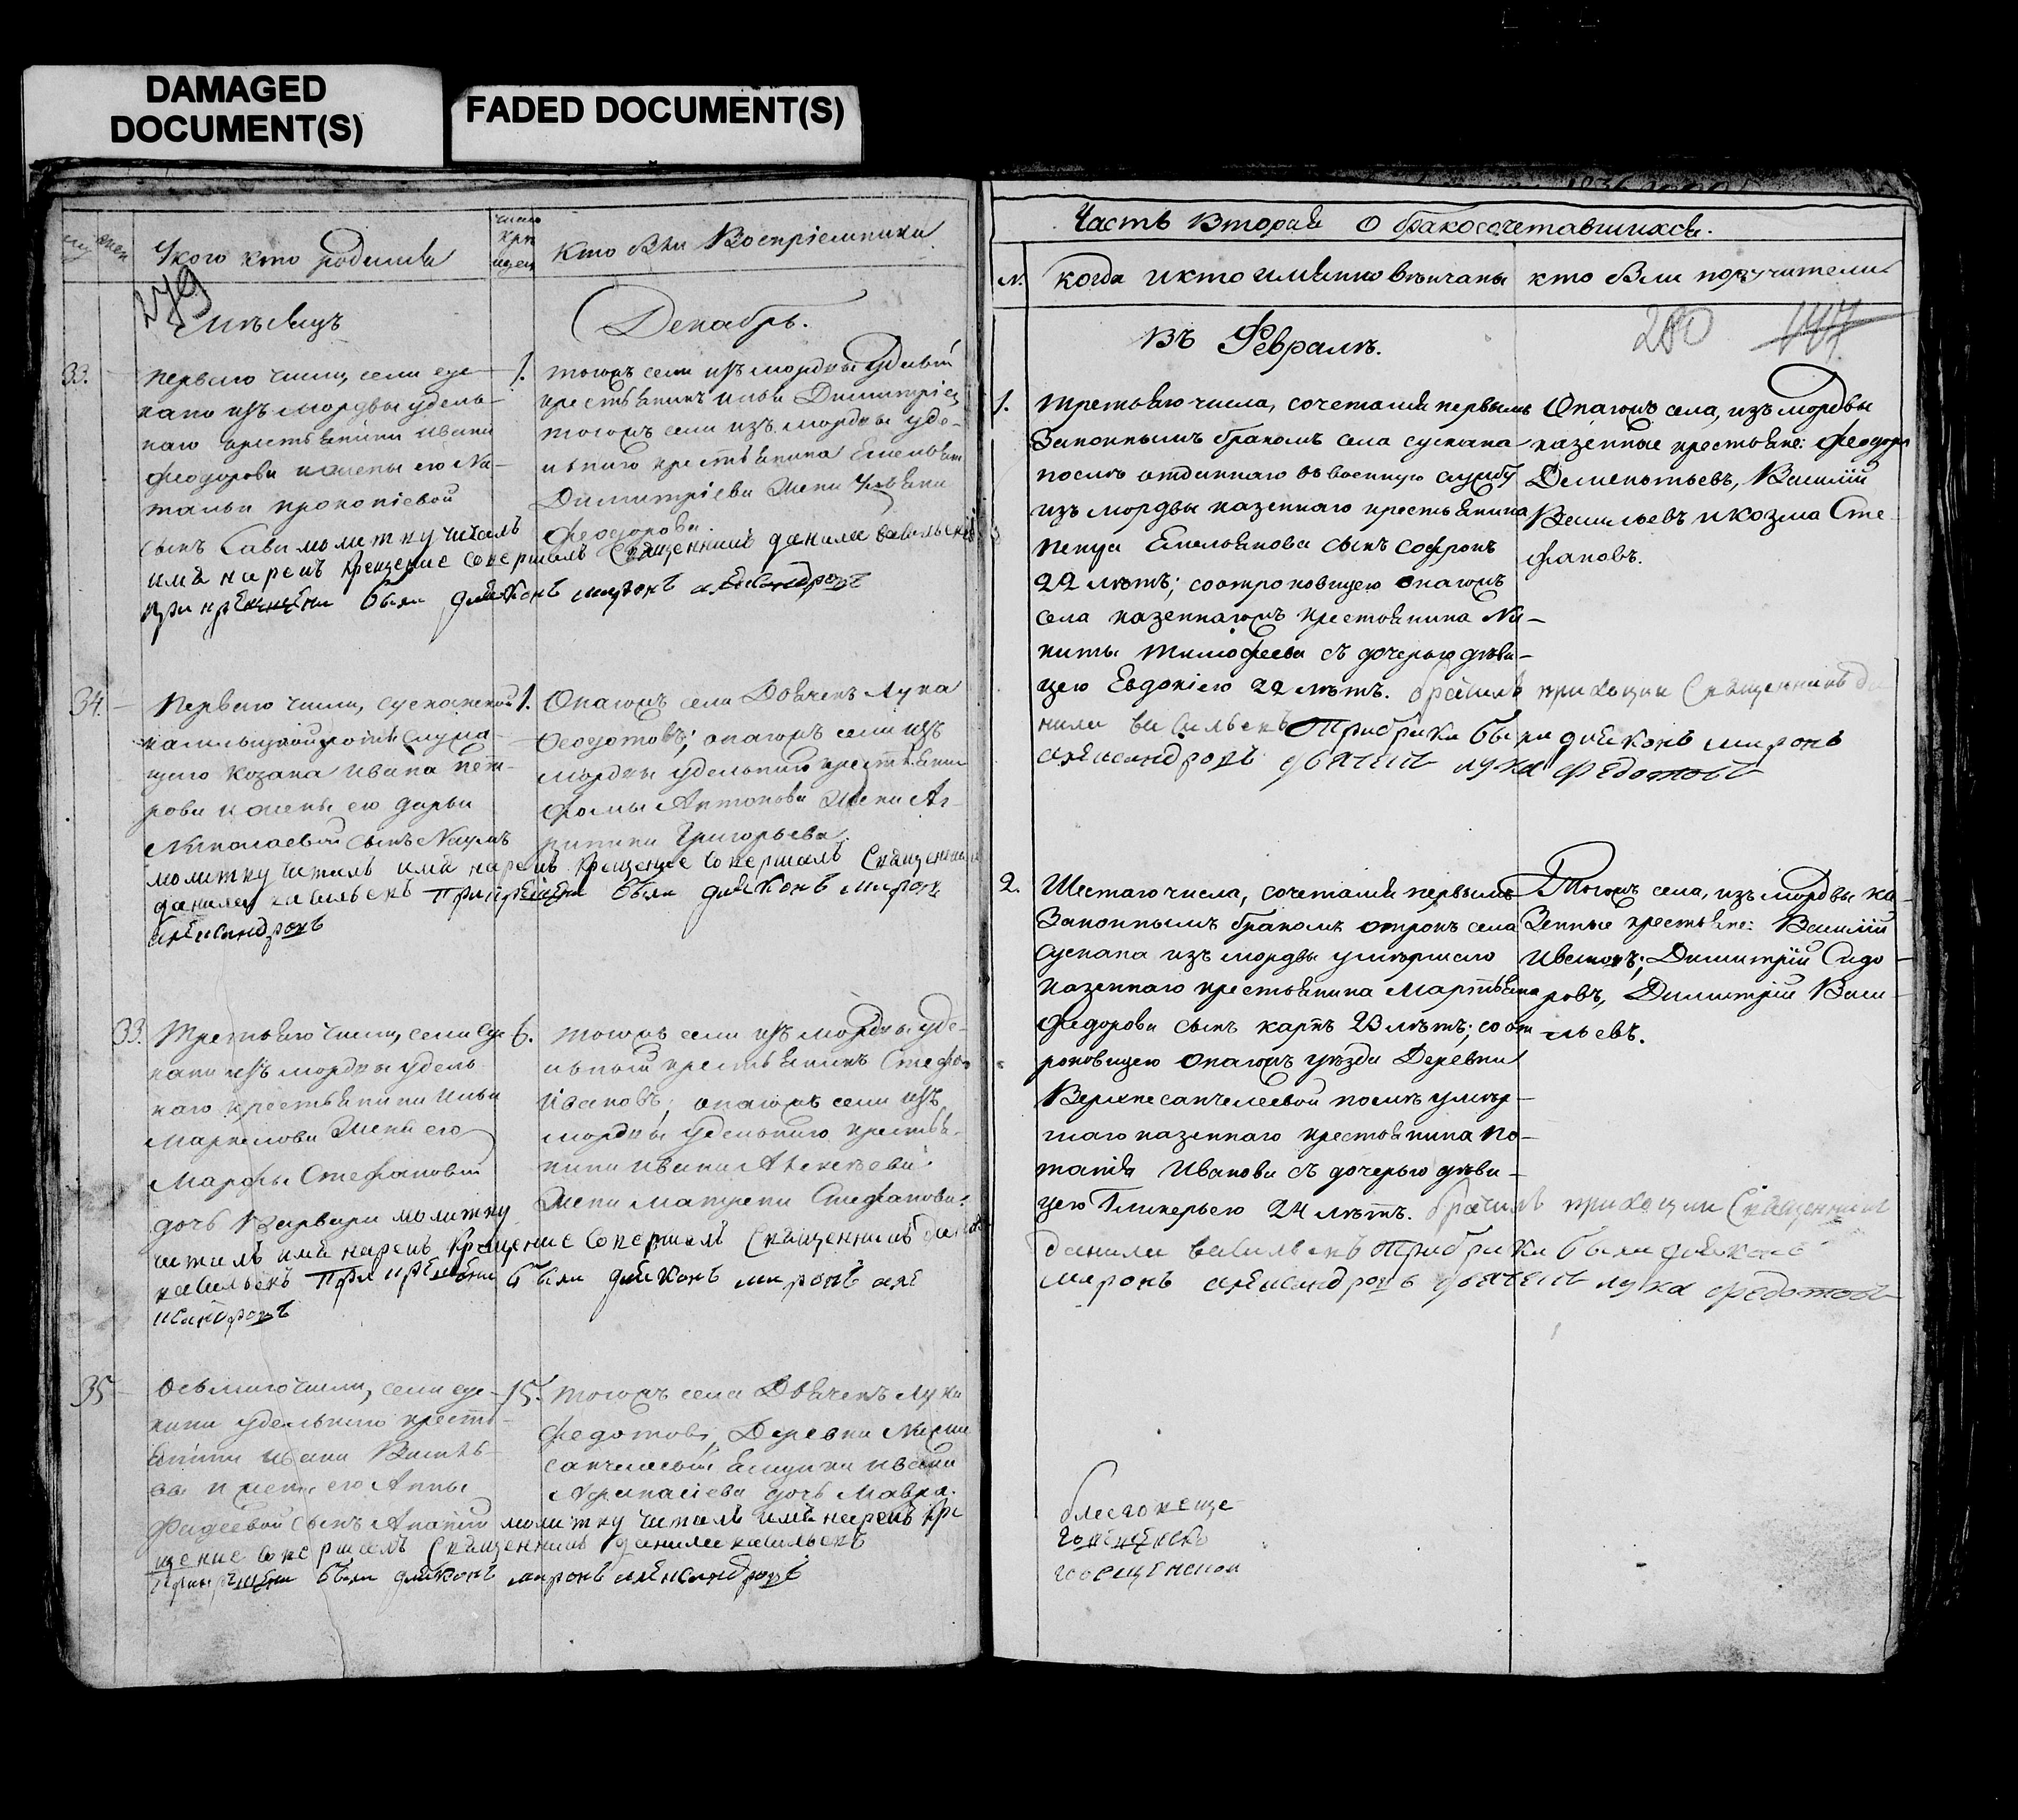 DAMAGED
DOCUMENT(S)
FADED DOCUMENT(S)
У кого кто родился
число
кто были Воспріемники
279
Мѣсяцъ
Декабрь.
33.
первого числа, села сус-
кана изъ мордвы удель-
наго крестьянина ивана
феодорова и жены его На-
тальи прокопіевой
сынъ Сава молитву читалъ
имя нарекъ крещение совершалъ Священникъ данила
при крещении были диаконъ миронъ александровъ
1.
тогожъ села изъ мордвы удельный
крестьянинъ илья Димитріев
тогожъ села изъ мордвы уде-
льнаго крестьянина Емельяна
Димитріева жена Ульяна
феодорова.
34.
Первого числа, сусканской
Козака ивана пет-
рова и жены его дарьи
Николаевой сынъ Наумъ
молитву читалъ имя нарекъ крещение совершалъ Священникъ
данила васильевъ при крещении были диаконъ миронъ
александровъ
1.
Онагожъ села Дьячекъ Лука
Феодотовъ; онагожъ села изъ
мордвы удельнаго крестьянина
фомы Антонова жена Аг-
рипина Григорьева.
33.
Третьяго числа, села Сус-
кана изъ мордвы удель-
наго крестьянина ильи
Маркелова жены его
Марфы Стефановой
дочь Варвара молитву
читалъ имя нарекъ крещение совершалъ Священникъ данила
васильевъ при крещении были диаконъ миронъ але
ксандровъ
6.
тогожъ села изъ мордвы уде-
льный крестьянинъ Стефанъ
Ивановъ; онагожъ села изъ
мордвы удельнаго крестья-
нина ивана Алексеева
жена матрена Стефанова.
35
Осьмаго числа, села сус-
кана удельнаго кресть-
янина ивана Василь
ва и жены его Анны
Фадеевой сынъ Анатий молитву читалъ имя нарекъ кре
щение совершалъ Священникъ данила васильевъ
при крещении были диаконъ миронъ александровъ
15.
тогожъ села Дьячекъ Лука
Федотовъ, Деревни
санчелеевой ивана
Афанасіева дочь Мавра.
Часть Вторая О бракосочетавшихся.
№.
когда и кто имянно венчаны
кто были поручители
280
Въ Февралѣ.
1.
Третьяго числа, сочетался первымъ
Законнымъ бракомъ села сускана
послѣ отданнаго въ военную службу
изъ мордвы казеннаго крестьянина
Емельянова сынъ Софронъ
22 лѣтъ; соотроковицею онагожъ
села казеннагожъ крестьянина Ни-
киты Тимофеева съ дочерью дѣви-
цею Евдокіею 22 лѣтъ. брачилъ приходцки Священникъ да
нила васильевъ при браки были диаконъ миронъ
александровъ дьячекъ лука федотовъ
Онагожъ села, изъ мордвы
казенные крестьяне: феодоръ
Дементьевъ, Василій
Васильевъ и козма Сте-
фановъ.
2.
Шестаго числа, сочетался первымъ
Законнымъ бракомъ отрокъ села
Сускана изъ мордвы умершаго
казеннаго крестьянина Мартьяна
Федорова сынъ карпъ 23 лѣтъ; со от
роковицею онагожъ уѣзда Деревни
Верхнесанчелеевой послѣ умер-
шаго казеннаго крестьянина По-
тапія Иванова съ дочерью дѣви-
цею Гликерьею 24 лѣтъ. брачилъ приходцки Священникъ
данила васильевъ при браки были диаконъ
миронъ александровъ дьячекъ лука федотовъ
Тогожъ села, изъ мордвы ка-
зенные крестьяне: Василій
Димитрій Сидо-
ровъ, Димитрій Васи-
льевъ.